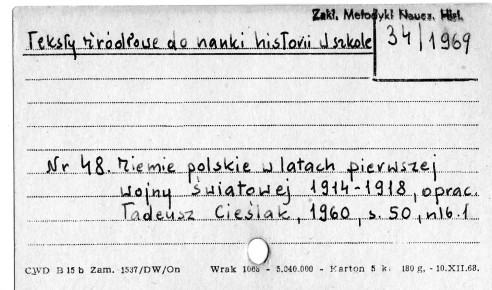 Zakł. Metodyki Naucz. Hist.
Teksty źródłowe do nauki historii w szkole
34/1969
Nr 48. Ziemie polskie w latach pierwszej
wojny światowej 1914-1918, oprac.
Tadeusz Cieślak, 1960, s. 50, nlb. 1
CWD B 15 b Zam. 1537/DW/On Wrak 1068 - 5.040.000 - Karton 5 k. 180 g. - 10.XII.68.